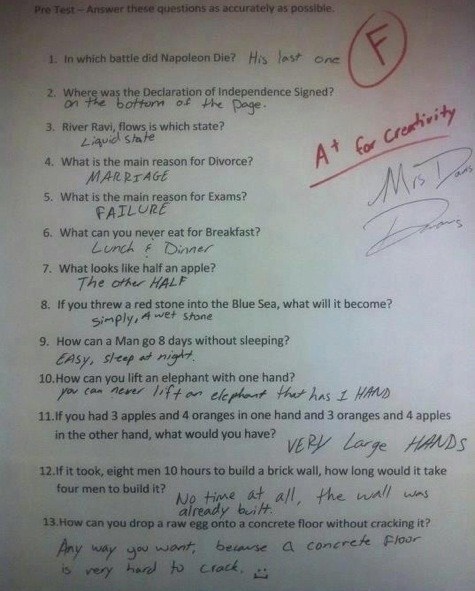 Pre Test – Answer these questions as accurately as possible.
F
1. In which battle did Napoleon Die? His last one
2. Where was the Declaration of Independence Signed?
on the bottom of the page.
3. River Ravi, flows is which state?
Liquid state
A+ for Creativity
4. What is the main reason for Divorce?
MARRIAGE
Mrs
5. What is the main reason for Exams?
FAILURE
6. What can you never eat for Breakfast?
Lunch & Dinner
7. What looks like half an apple?
The other HALF
8. If you threw a red stone into the Blue Sea, what will it become?
Simply, A wet stone
9. How can a Man go 8 days without sleeping?
EASY, sleep at night.
10.How can you lift an elephant with one hand?
you can never lift an elephant that has 1 HAND
11.If you had 3 apples and 4 oranges in one hand and 3 oranges and 4 apples
in the other hand, what would you have? VERY Large HANDS
12.If it took, eight men 10 hours to build a brick wall, how long would it take
four men to build it? No time at all, the wall was
already built.
13.How can you drop a raw egg onto a concrete floor without cracking it?
Any way you want, because a concrete floor
is very hard to crack.